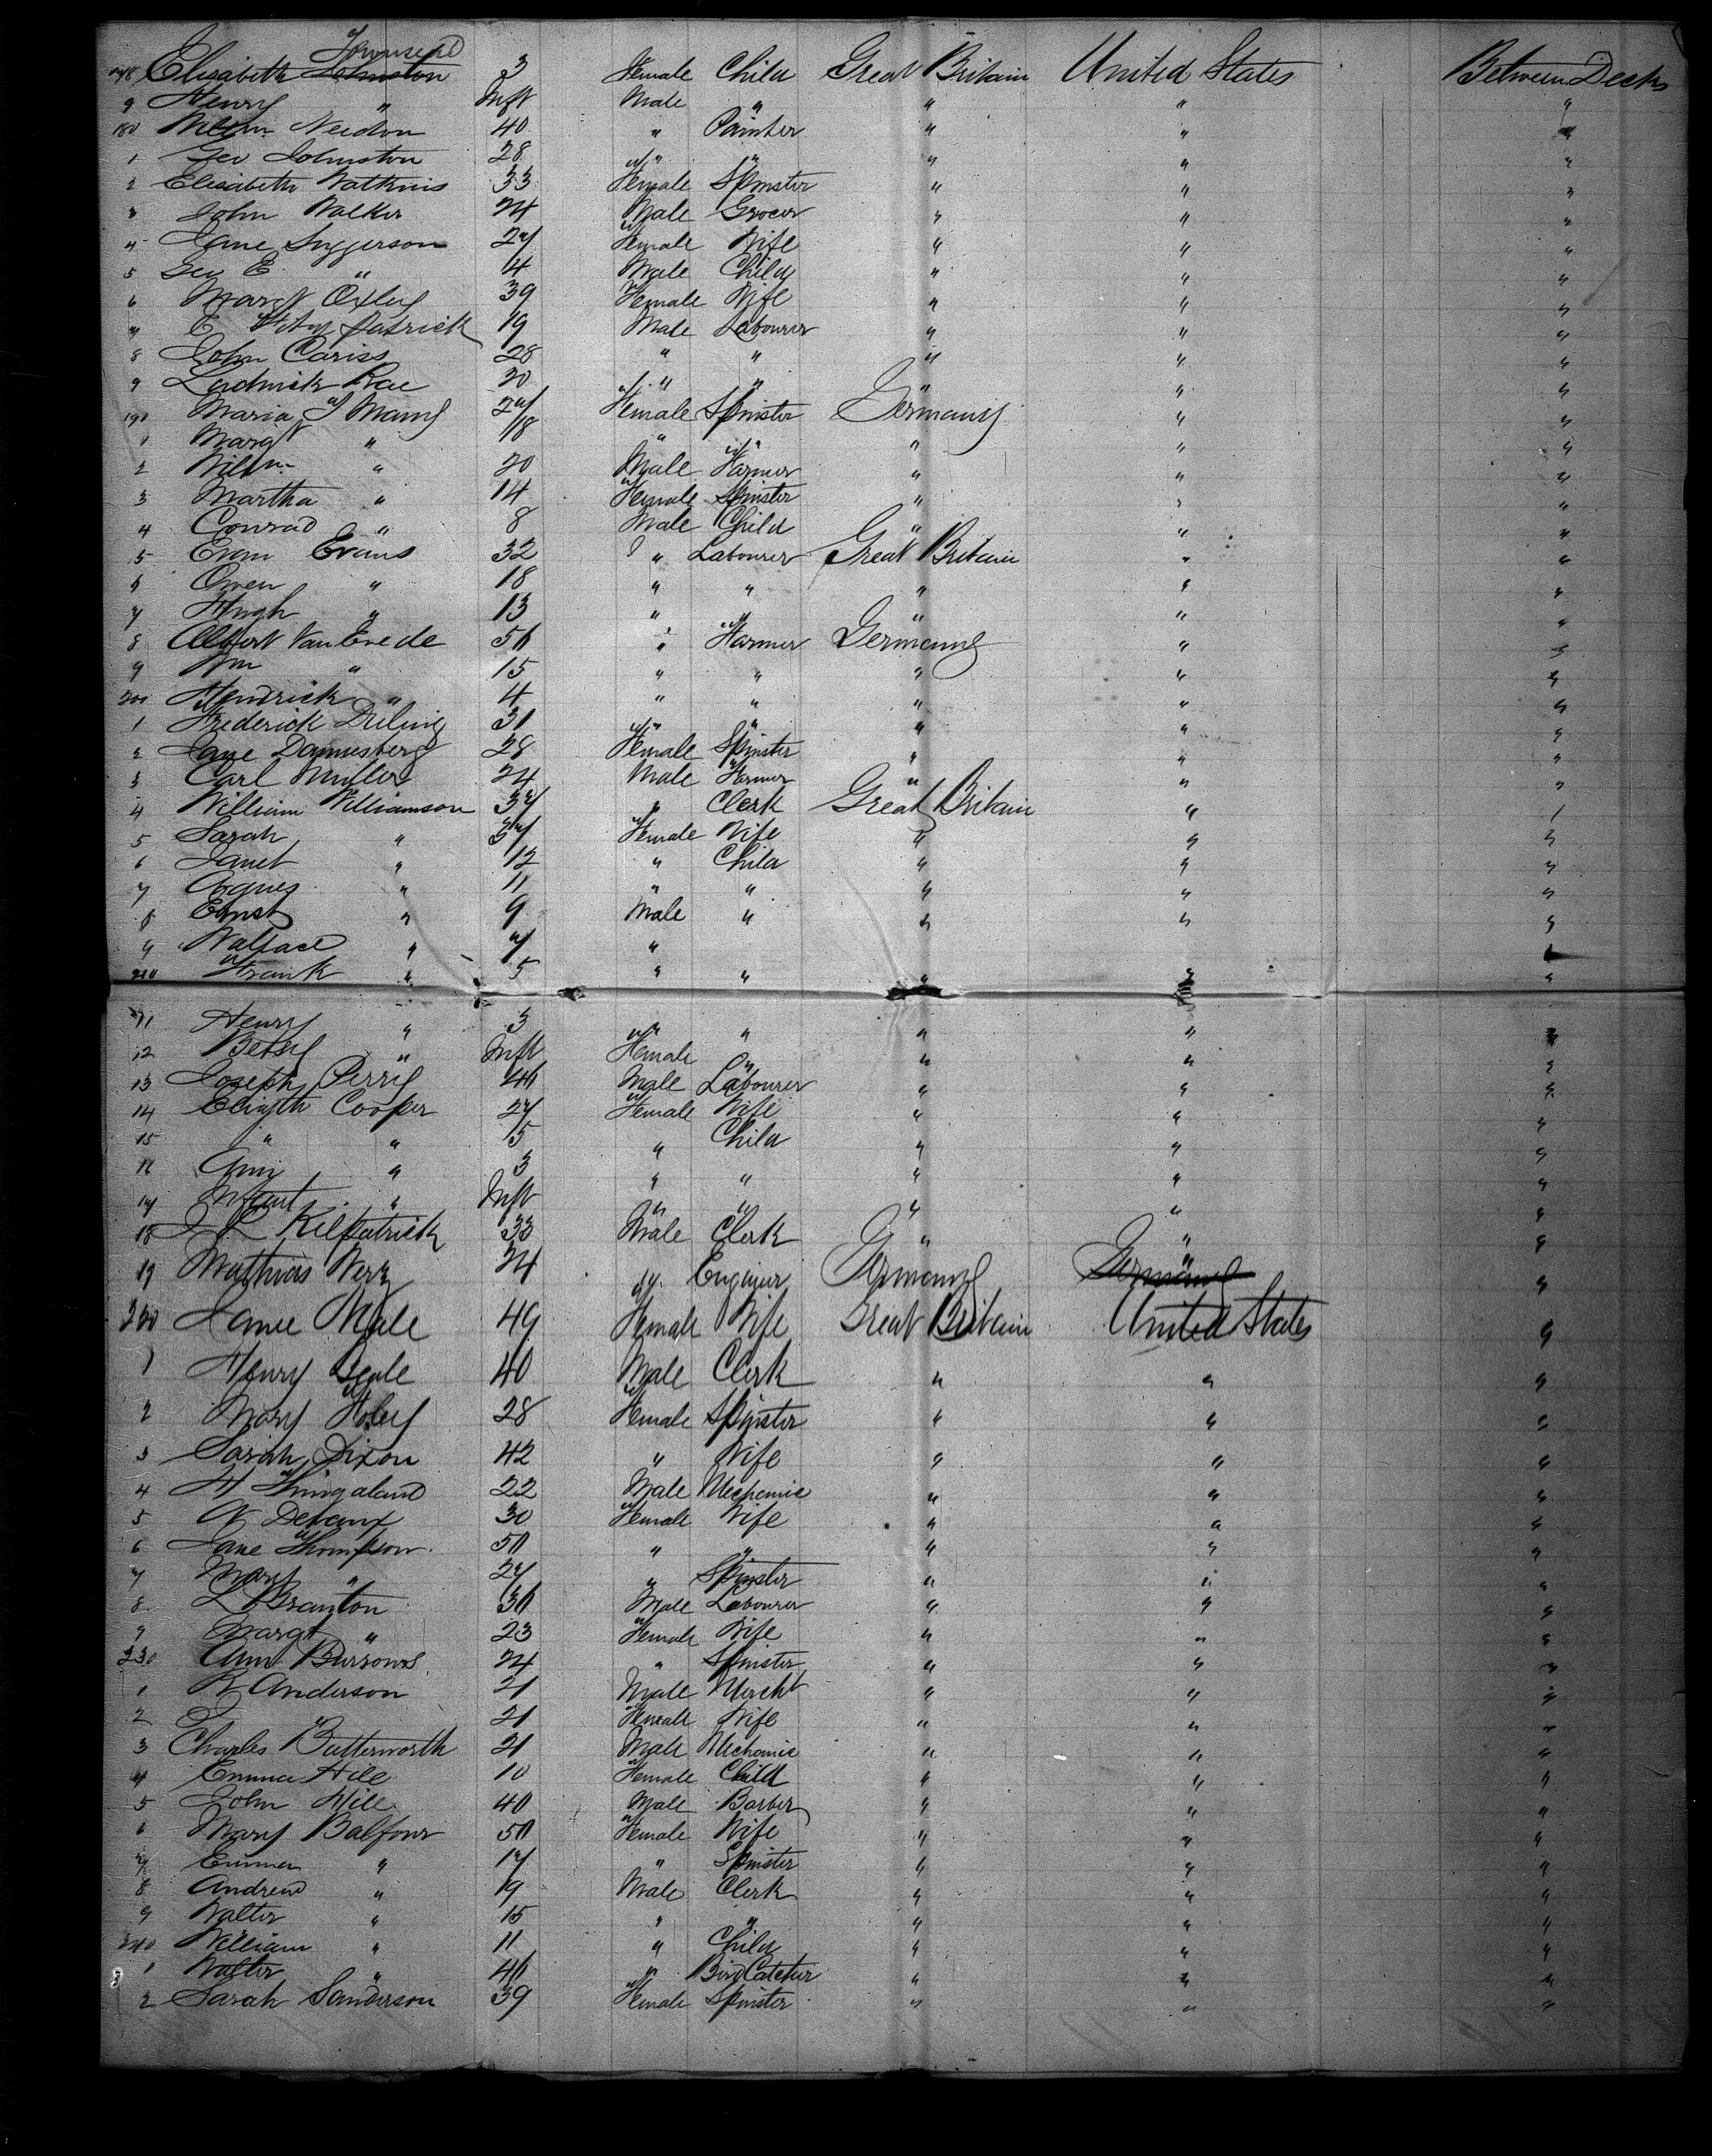 Townsend
178 Elisabeth Johnston 3 Female Child Great Britain United States Between Decks
9 Henry " Inft Male " " " "
180 Willm Needon 40 " Painter " " "
1 Geo Johnston 28 " " " " "
2 Elisabeth Watkins 33 Female Spinster " " "
3 John Walker 24 Male Grocer " " "
4 Jane Suggerson 27 Female Wife " " "
5 Geo E " 4 Male Child " " "
6 Margt Oxley 39 Female Wife " " "
7 C Fitzpatrick 19 Male Labourer " " "
8 John Cariss 28 " " " " "
9 Ludwick Rae 20 " " " " "
190 Maria 27 Female Spinster Germany " "
1 Margt " 18 " " " " "
2 Willm " 20 Male Farmer " " "
3 Martha " 14 Female Spinster " " "
4 Conrad " 8 Male Child " " "
5 Evan Evans 32 " Labourer Great Britain " "
6 Owen " 18 " " " " "
7 Hugh " 13 " " " " "
8 Albert Van Erede 56 " Farmer Germany " "
9 Wm " 15 " " " " "
200 Hendrick " 4 " " " " "
1 Frederick Driling 31 " " " " "
2 Jane Dannesberg 28 Female Spinster " " "
3 Carl Muller 24 Male Farmer " " "
4 William Williamson 37 " Clerk Great Britain " "
5 Sarah " 37 Female Wife " " "
6 Janet " 12 " Child " " "
7 Agnes " 11 " " " " "
8 Ernst " 9 Male " " " "
9 Wallace " 7 "
210 Frank " 5 " " " " "
11 Henry " 3 " " " " "
12 Betsy " Inft Female " " "
13 Joseph Perry 46 Male Labourer " " "
14 Elizth Cooper 27 Female Wife " " "
15 " " 5 " Child " " "
16 Ann " 3 " " " " "
17 Infant " Inft " " " " "
18 J L Kilpatrick 33 Male Clerk " " "
19 Mathias Merz 24 " Engineer Germany Germany "
220 Jane Male 49 Female Wife Great Britain United States "
1 Henry Beale 40 Male Clerk " " "
2 Mary Foley 28 Female Spinster " " "
3 Sarah Dixon 42 " Wife " " "
4 H 22 Male Mechanic " " "
5 A Devaux 30 Female Wife " " "
6 Jane Thompson 50 " " " " "
7 Mary " 27 " Spinster " " "
8 L Branton 36 Male Labourer " " "
9 Margt " 23 Female Wife " " "
230 Ann Burrows 24 " Spinster " " "
1 R Anderson 21 Male Mercht " " "
2 21 Female Wife " " "
3 Charles Butterworth 21 Male Mechanic " " "
4 Emma Hill 10 Female Child " " "
5 John Hill 40 Male Barber " " "
6 Mary Balfour 50 Female Wife " " "
7 Emma " 17 " Spinster " " "
8 Andrew " 19 Male Clerk " " "
9 Walter " 15 " " " " "
240 William " 11 " Child " " "
1 Walter " 46 " Bird Catcher " " "
2 Sarah Sanderson 39 Female Spinster " " "